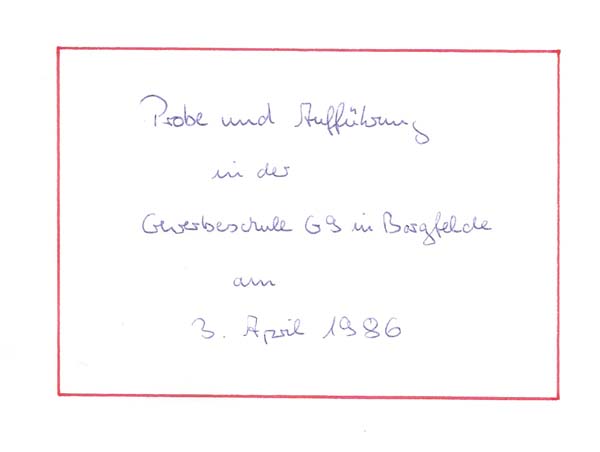 Probe und Aufführung
in der
Gewerbeschule G9 in Borgfelde
am
3. April 1986